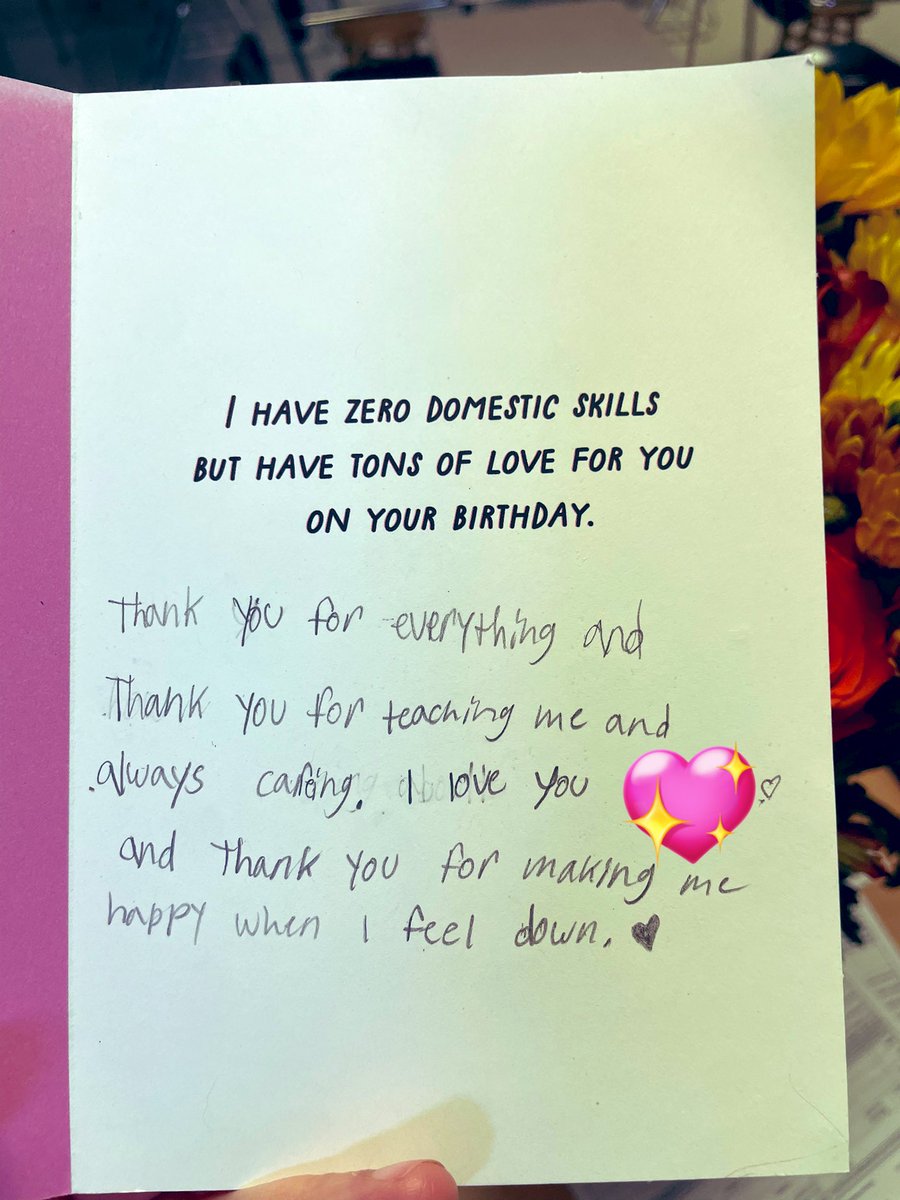 I HAVE ZERO DOMESTIC SKILLS
BUT HAVE TONS OF LOVE FOR YOU
ON YOUR BIRTHDAY.
Thank you for everything and
Thank you for teaching me and
always caring. I love you
and Thank you for making me
happy when I feel down.